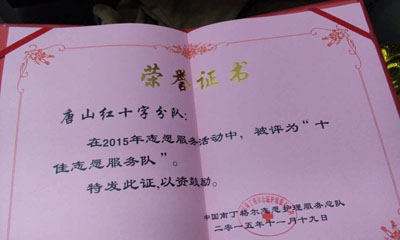 荣誉证书
唐山红十字分队：
在2015年志愿服务活动中，被评为“十
佳志愿服务队”。
特发此证，以资鼓励。
中国南丁格尔志愿护理服务总队
二零一五年十一月十九日